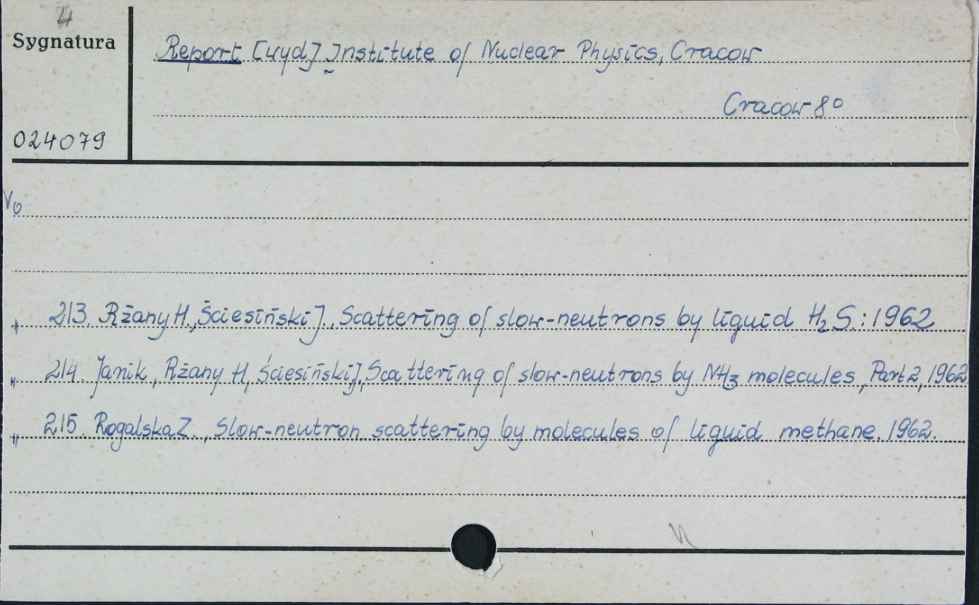 4
Sygnatura
Report [wyd] Institute of Nuclear Physics, Cracow
Cracow 8°
024079
213. Rżany H., Ściesiński J., Scattering of slow-neutrons by liguid H₂S.: 1962
214. Janik, Rżany H, Ściesiński J., Scattering of slow-neutrons by NH₃ molecules, Part 2, 1962
215. Rogalska Z., Slow-neutron scattering by molecules of liguid methane. 1962.